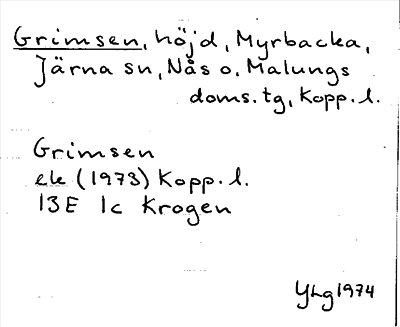 Grimsen, höjd, Myrbacka,
Järna sn, Nås o. Malungs
doms. tg, Kopp. l.
Grimsen
ek (1973) Kopp. l.
13E 1c Krogen
YLg 1974